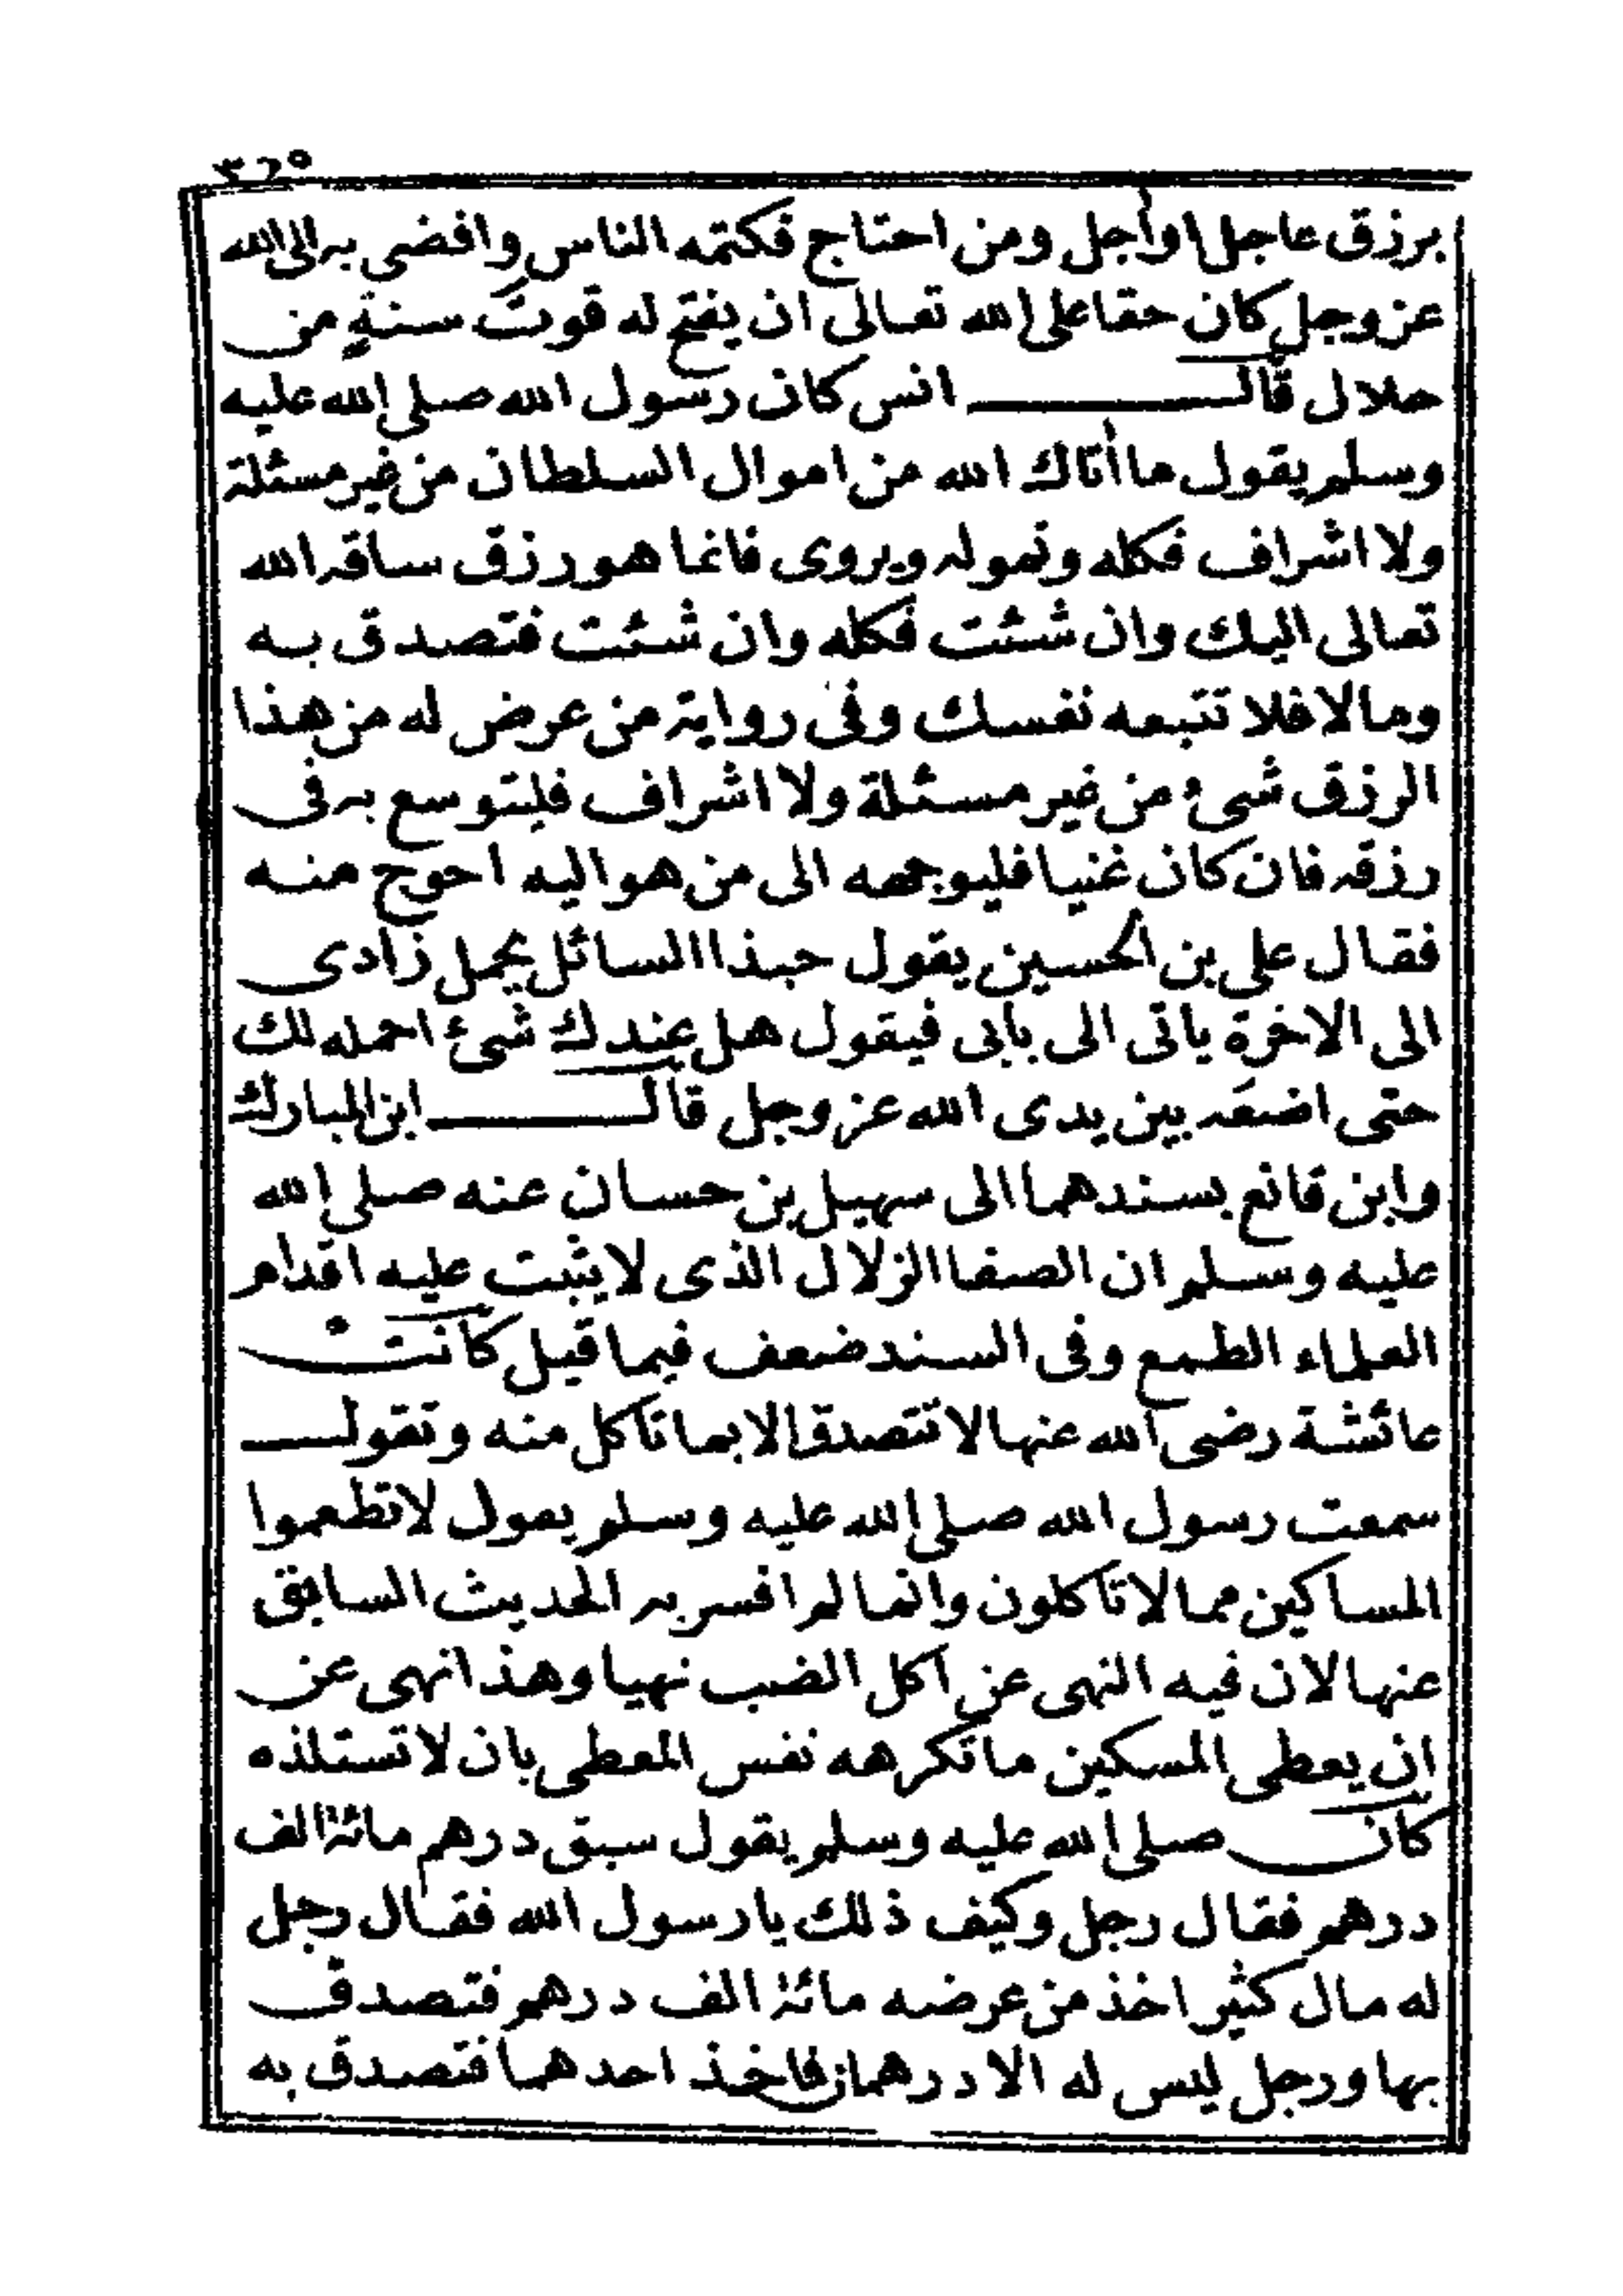 ٣٦٥
برزق عاجل او أجل ومن احتاج فكتمه الناس وافضى به الى الله
عز وجل كان حقا على الله تعالى ان يفتح له قوت سنةٍ من
حلال قال انس كان رسول الله صلى الله عليه
وسلم يقول ما أتاك الله من اموال السلطان من غير مسئلة
ولا اشراف فكله وتموله ويروى فانما هو رزق ساقه الله
تعالى اليك وان شئت فكله وان شئت فتصدق به
وما لا فلا تتبعه نفسك وفى رواية من عرض له من هذا
الرزق شىء من غير مسئلة ولا اشراف فليتوسع به فى
رزقه فان كان غنيا فليوجهه الى من هو اليه احوج منه
فقال على بن الحسين يقول حبذا السائل يحمل زادى
الى الاخرة ياتى الى بابى فيقول هل عندك شىء احمله لك
حتى اضعه بين يدى الله عز وجل قال ابن المبارك
وابن قانع بسندهما الى سهيل بن حسان عنه صلى الله
عليه وسلم ان الصفا الزلال الذى لا يثبت عليه اقدام
العلماء الطمع وفى السند ضعف فيما قيل كانت
عائشة رضى الله عنها لا تتصدق الا بما تاكل منه وتقول
سمعت رسول الله صلى الله عليه وسلم يعول لا تطعموا
المساكين مما لا تاكلون وانما لم افسر به الحديث السابق
عنها لان فيه النهى عن اكل الضب نهيا وهذا نهى عن
ان يعطى المسكين ما تكرهه نفس المعطى بان لا تستلذه
كان صلى الله عليه وسلم يقول سبق درهم مائة الف
درهم فقال رجل وكيف ذلك يا رسول الله فقال رجل
له مال كثير اخذ من عرضه مائة الف درهم فتصدق
بها ورجل ليس له الا درهمان فاخذ احدهما فتصدق به